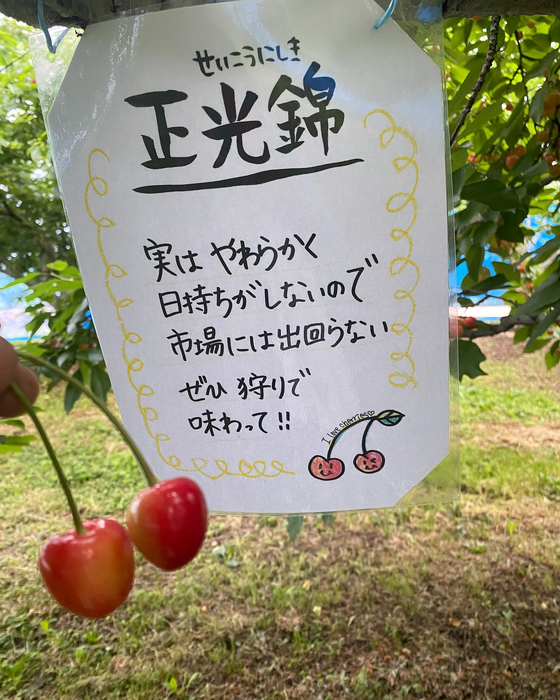 せいこうにしき
正光錦
実は やわらかく
日持ちがしないので
市場には出回らない
ぜひ 狩りで
味わって!!
I love cherries